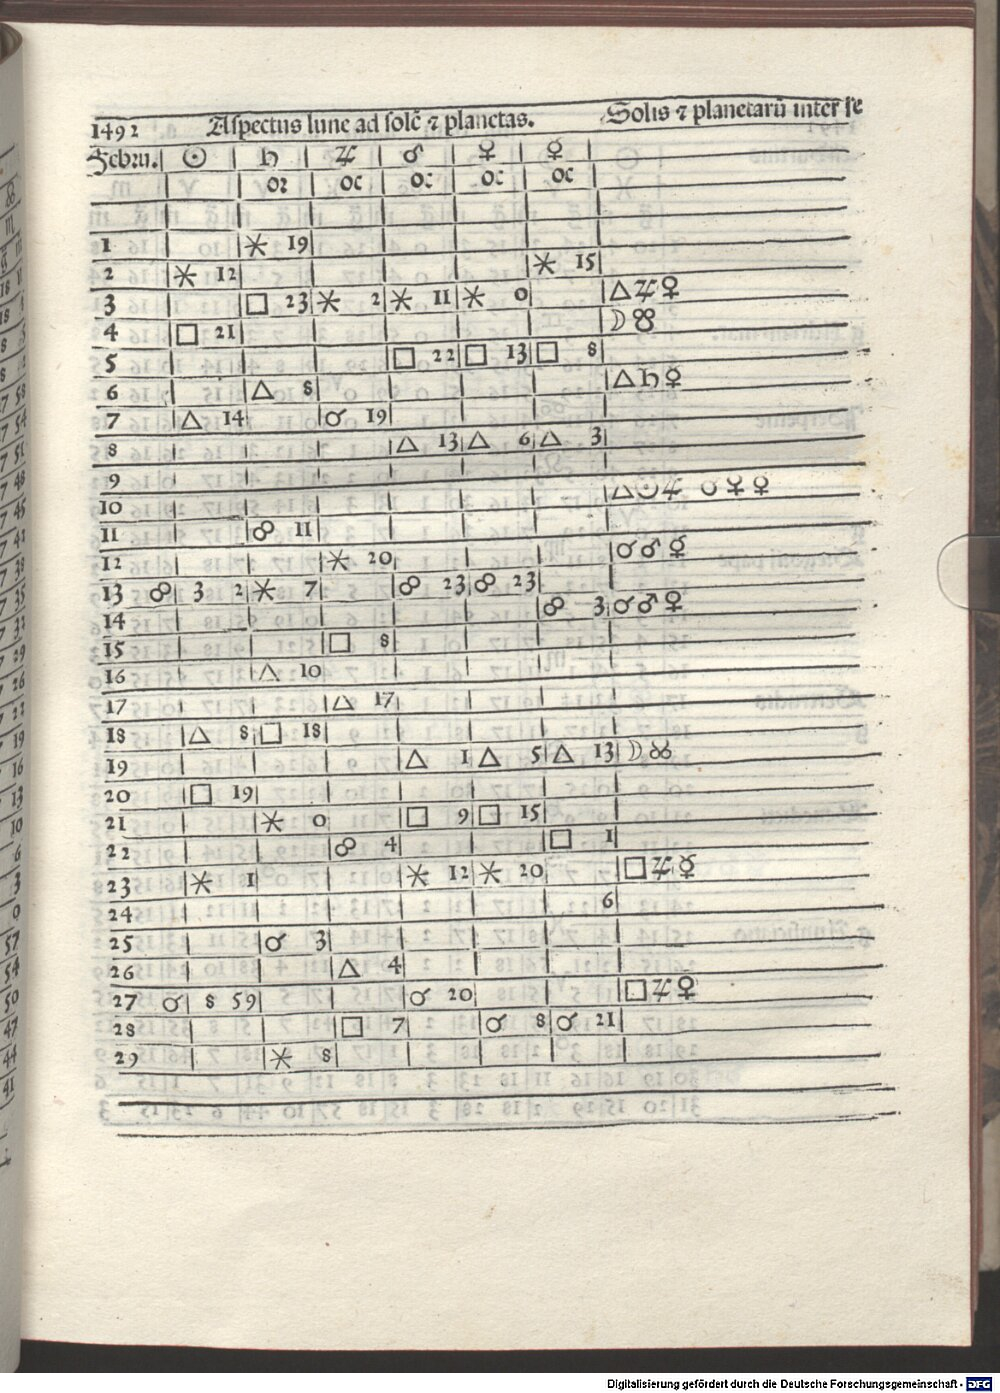 1492 Aspectus lune ad solē ⁊ planetas. Solis ⁊ planetarū inter se
Febru. ☉ ♄ ♃ ♂ ♀ ☿
oꝛ oc oc oc oc
1 ⚹ 19
2 ⚹ 12 ⚹ 15
3 □ 23 ⚹ 2 ⚹ 11 ⚹ 0 △ ♃ ♀
4 □ 21 ☽ ☋
5 □ 22 □ 13 □ 8
6 △ 8 △ ♄ ☿
7 △ 14 ☌ 19
8 △ 13 △ 6 △ 3
9
10 △ ☉ ♃ ☌ ☿ ♀
11 ☍ 11
12 ⚹ 20 ☌ ♂ ☿
13 ☍ 3 2 ⚹ 7 ☍ 23 ☍ 23
14 ☍ 3 ☌ ♂ ♀
15 □ 8
16 △ 10
17 △ 17
18 △ 8 □ 18
19 △ 1 △ 5 △ 13 ☽ ☊
20 □ 19
21 ⚹ 0 □ 9 □ 15
22 ☍ 4 □ 1
23 ⚹ 1 ⚹ 12 ⚹ 20 □ ♃ ☿
24 6
25 ☌ 3
26 △ 4
27 ☌ 8 59 ☌ 20 □ ♃ ♀
28 □ 7 ☌ 8 ☌ 21
29 ⚹ 8
Digitalisierung gefördert durch die Deutsche Forschungsgemeinschaft - DFG